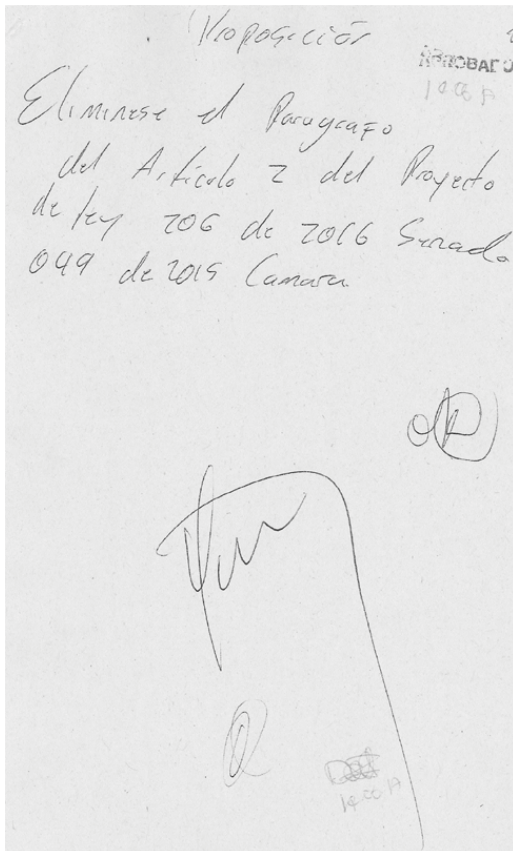 Proposición
APROBADO
Eliminese el Paragrafo
del Articulo 2 del Proyecto
de ley 206 de 2016 Senado
049 de 2015 Camara